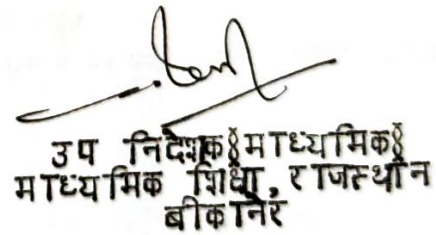 उप निदेशक§माध्यमिक§
माध्यमिक शिक्षा, राजस्थान
बीकानेर